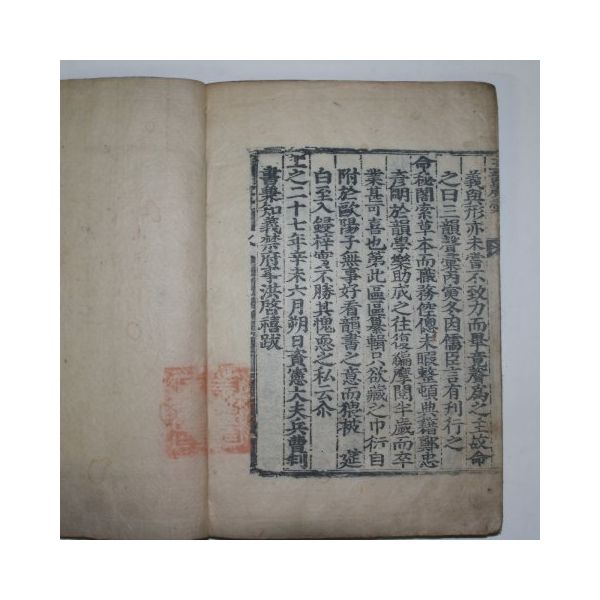 義與形亦未嘗不致力而畢竟聲爲之主故命
之曰三韻聲彙丙寅冬因儒臣言有刊行之
命秘閣索草本而職務倥傯未暇整頓典籍鄭忠
彦明於韻學樂助成之往復編摩閱半歲而卒
業甚可喜也第此區區纂輯只欲藏之巾衍自
附於歐陽子無事好看韻書之意而猥被 筵
白至入鋟梓實不勝其愧恧之私云尒
上之二十七年辛未六月朔日資憲大夫兵曹判
書兼知義禁府事洪啓禧跋